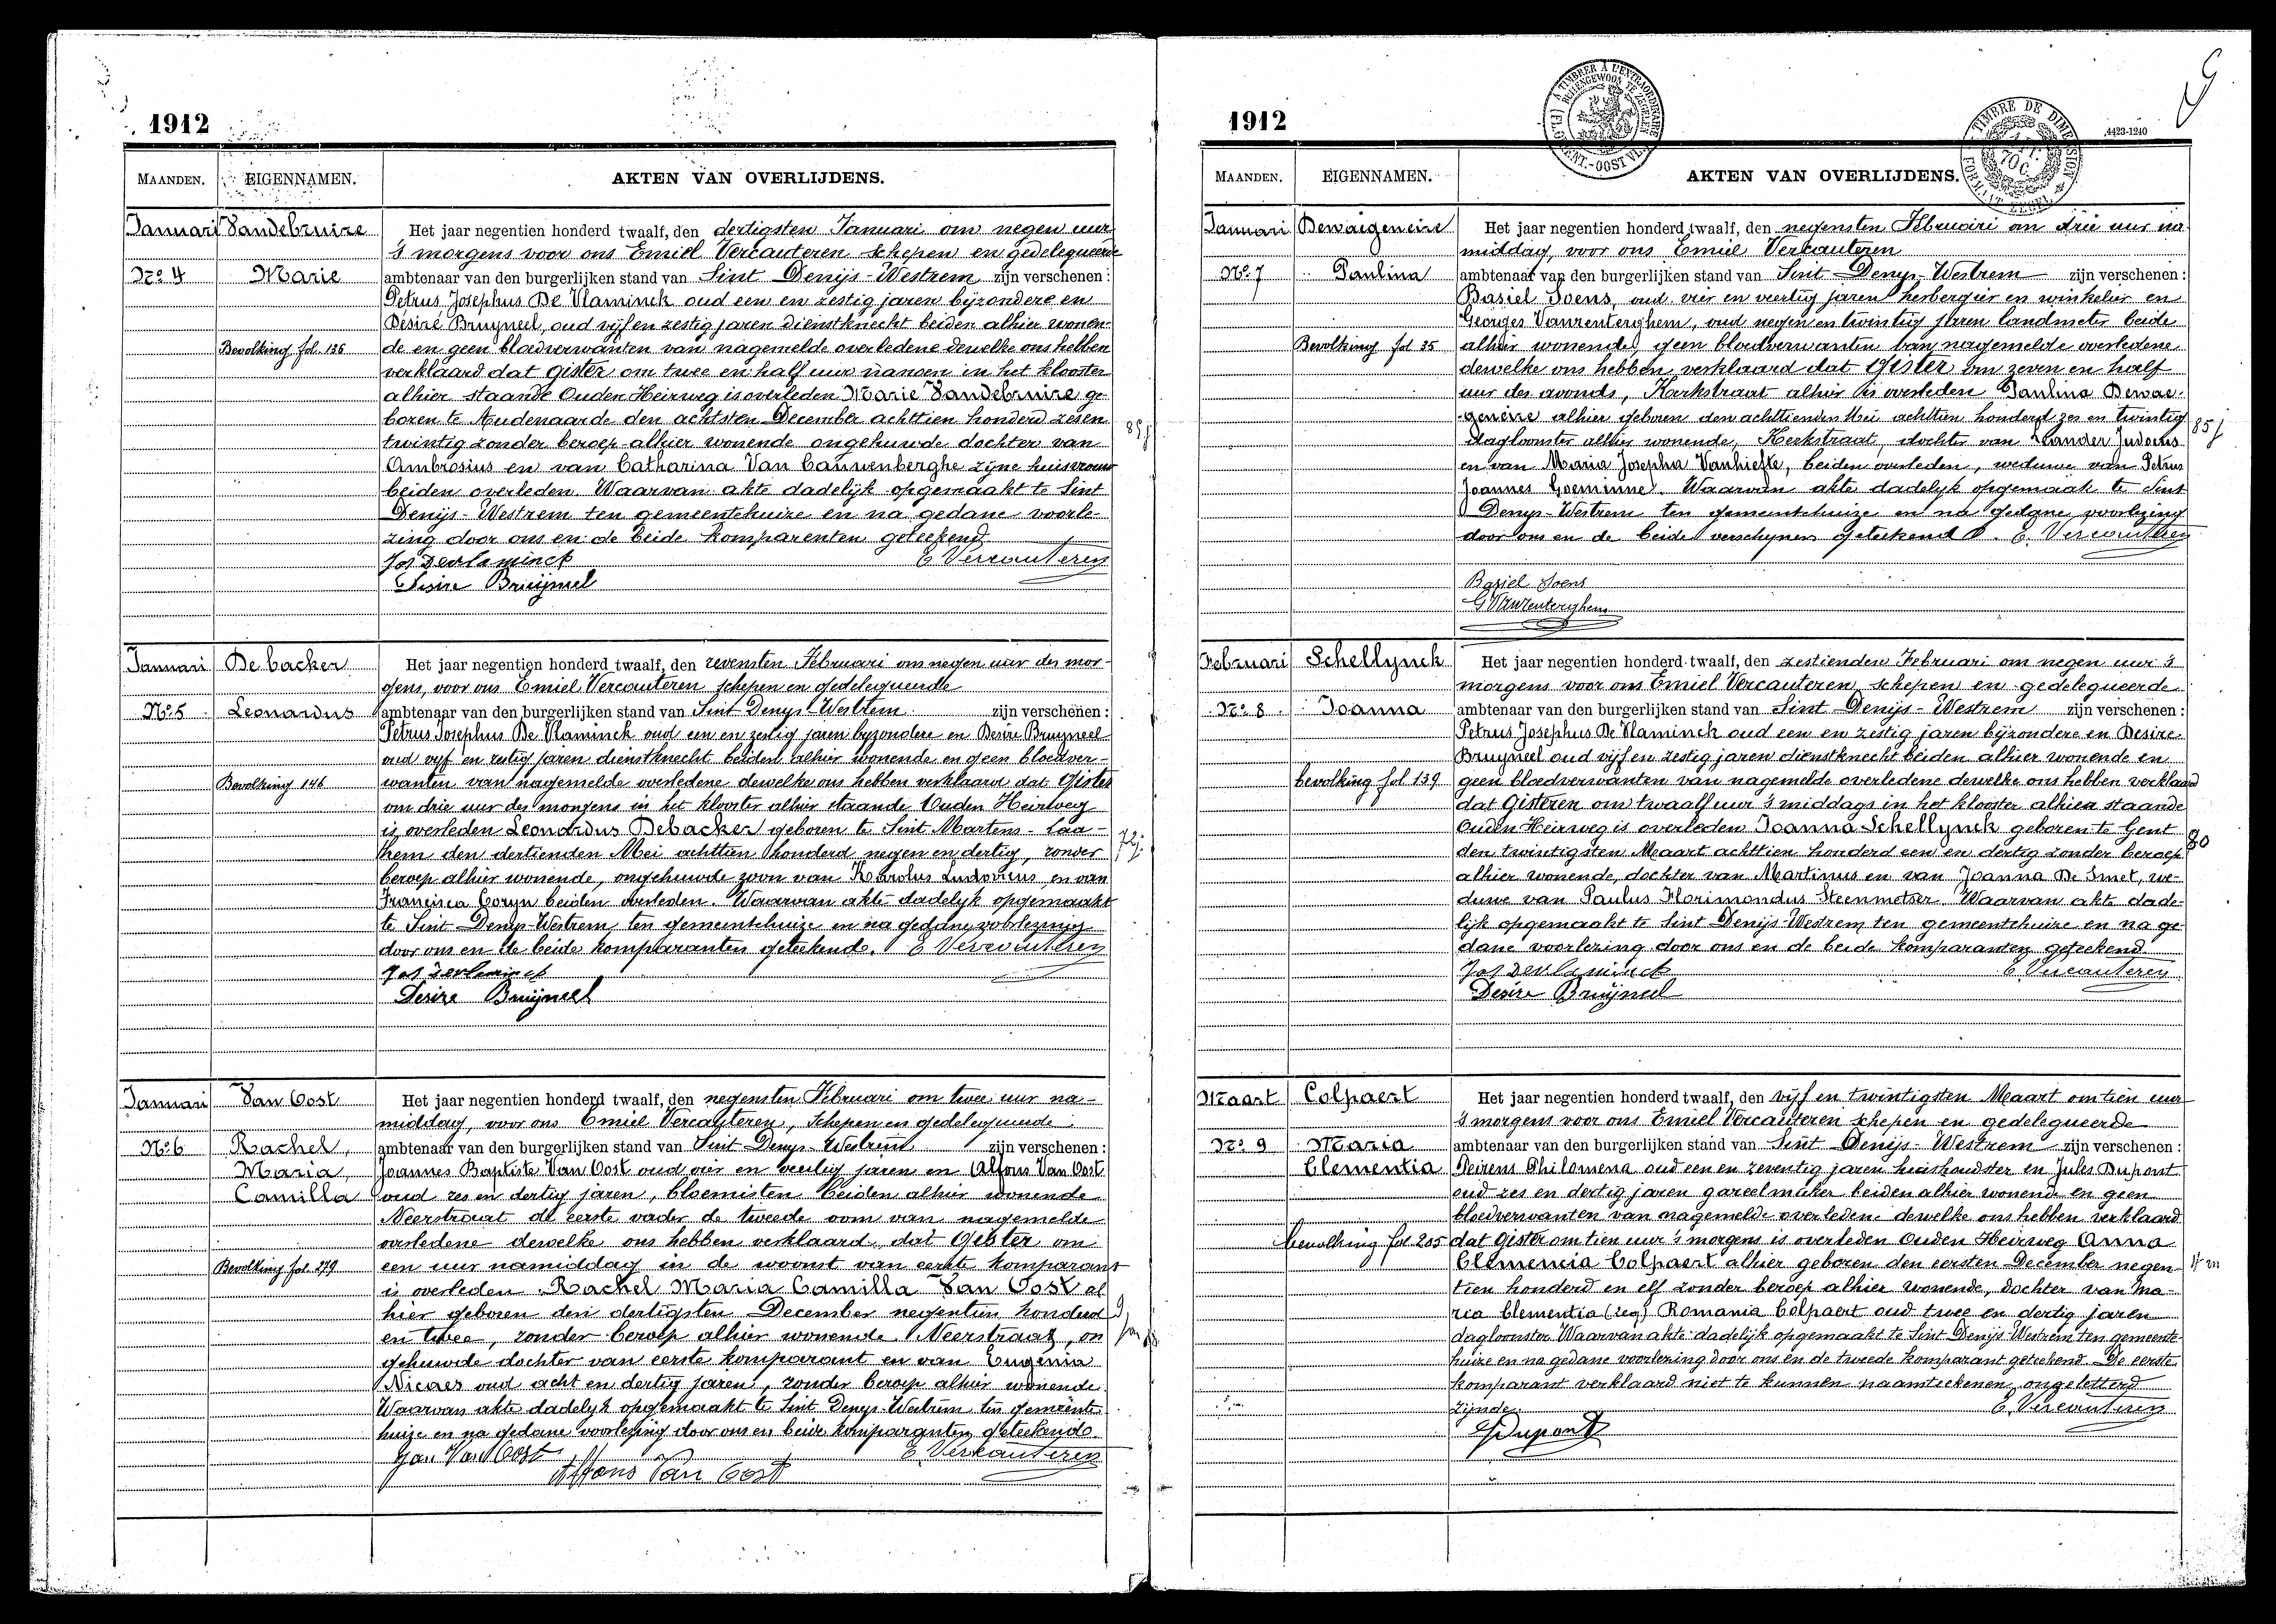 1912
MAANDEN. EIGENNAMEN. AKTEN VAN OVERLIJDENS.
Januari Vandebruire Het jaar negentien honderd twaalf, den dertigsten Januari om negen uur
's morgens voor ons Emiel Vercauteren schepen en gedelegueerde
No. 4 Marie ambtenaar van den burgerlijken stand van Sint Denijs-Westrem zijn verschenen:
Petrus Josephus De Vlaminck oud een en zestig jaren bijzondere en
Désiré Bruyneel, oud vijf en zestig jaren dienstknecht beiden alhier wonen-
Bevolking fol. 136 de en geen bloedverwanten van nagemelde overledene dewelke ons hebben
verklaard dat gister om twee en half uur nanoen in het klooster
alhier staande Ouden Heirweg is overleden Marie Vandebruire ge-
boren te Audenaarde den achtsten December achttien honderd zesen
twintig zonder beroep alhier wonende ongehuwde dochter van
85 j
Ambrosius en van Catharina Van Cauwenberghe zijne huisvrouw
beiden overleden. Waarvan akte dadelijk opgemaakt te Sint
Denijs-Westrem ten gemeentehuize en na gedane voorle-
zing door ons en de beide komparenten geteekend
Jos Devlaminck E Vercauteren
Desire Bruijneel
Januari De backer Het jaar negentien honderd twaalf, den zevensten Februari om negen uur des mor-
gens, voor ons Emiel Vercauteren schepen en gedelegueerde
No. 5 Leonardus ambtenaar van den burgerlijken stand van Sint Denys Westrem zijn verschenen:
Petrus Josephus De Vlaminck oud een en zestig jaren byzondere en Desire Bruyneel
oud vyf en zestig jaren dienstknecht beiden alhier wonende en geen bloedver-
Bevolking 146 wanten van nagemelde overledene dewelke ons hebben verklaard dat Gister
om drie uur des morgens in het klooster alhier staande Ouden Heirweg
is overleden Leonardus Debacker geboren te Sint Martens-Laa-
them den dertienden Mei achttien honderd negen en dertig, zonder
72 j.
beroep alhier wonende, ongehuwde zoon van Karolus Ludovicus en van
Francisca Coryn beiden overleden. Waarvan akte dadelyk opgemaakt
te Sint Denys-Westrem ten gemeentehuize en na gedane voorlezing
door ons en de beide komparanten geteekend. E Vercauteren
Jos Devlaminck
Desire Bruijneel
Januari Van Oost Het jaar negentien honderd twaalf, den negensten Februari om twee uur na-
middag, voor ons Emiel Vercauteren, schepen en gedelegueerde
No. 6 Rachel, ambtenaar van den burgerlijken stand van Sint Denys Westrem zijn verschenen:
Maria, Joannes Baptiste Van Oost oud vier en veertig jaren en Alfons Van Oost
Camilla oud zes en dertig jaren, bloemisten beiden alhier wonende
Neerstraat de eerste vader de tweede oom van nagemelde
overledene dewelke ons hebben verklaard dat Gister om
Bevolking fol. 279 een uur namiddag in de woonst van eerste komparant
is overleden Rachel Maria Camilla Van Oost al
hier geboren den dertigsten December negentien honderd
en twee, zonder beroep alhier wonende Neerstraat, on
9 jar
gehuwde dochter van eerste komparant en van Eugenia
Nicaes oud acht en dertig jaren, zonder beroep alhier wonende.
Waarvan akte dadelyk opgemaakt te Sint Denys-Westrem ten gemeente
huize en na gedane voorlezing door ons en beide komparanten geteekend.
Jan Van Oost E. Verkauteren
Alfons Van Oost
1912
4423-1240
9
À TIMBRER À L'EXTRAORDINAIRE
BUITENGEWOON TE ZEGELEN
GENT.-OOST VL.
TIMBRE DE DIMENSION
70 C.
FORMAAT ZEGEL
MAANDEN. EIGENNAMEN. AKTEN VAN OVERLIJDENS.
Januari Dewaigeneire Het jaar negentien honderd twaalf, den negensten Februari om drie uur na
middag, voor ons Emiel Verkauteren
No. 7 Paulina ambtenaar van den burgerlijken stand van Sint Denys-Westrem zijn verschenen:
Basiel Soens, oud vier en veertig jaren herbergier en winkelier en
Georges Vanrenterghem, oud negen en twintig jaren landmeter beide
Bevolking fol 35 alhier wonende, geen bloedverwanten van nagemelde overledene
dewelke ons hebben verklaard dat Gister om zeven en half
uur des avonds, Kerkstraat alhier is overleden Paulina Dewae-
geneire alhier geboren den achttienden Mei achttien honderd zes en twintig
85 j
dagloonster alhier wonende, Kerkstraat, dochter van Lander Judocus
en van Maria Josepha Vanhiefte, beiden overleden, weduwe van Petrus
Joannes Goeminne. Waarvan akte dadelyk opgemaak te Sint
Denys-Westrem ten gemeentehuize en na gedane voorlezing
door ons en de beide verschynen geteekend. E. Vercauteren
Basiel Soens
G Vanrenterghem
Februari Schellynck Het jaar negentien honderd twaalf, den zestienden Februari om negen uur 's
morgens voor ons Emiel Vercauteren schepen en gedelegueerde
No. 8 Joanna ambtenaar van den burgerlijken stand van Sint Denijs-Westrem zijn verschenen:
Petrus Josephus De Vlaminck oud een en zestig jaren bijzondere en Desire
Bruyneel oud vijf en zestig jaren dienstknecht beiden alhier wonende en
bevolking fol. 139 geen bloedverwanten van nagemelde overledene dewelke ons hebben verklaard
dat Gisteren om twaalf uur 's middags in het klooster alhier staande
Ouden Heirweg is overleden Joanna Schellynck geboren te Gent
80
den twintigsten Maart achttien honderd een en dertig zonder beroep
alhier wonende, dochter van Martinus en van Joanna De Smet, we-
duwe van Paulus Florimondus Steenmetser. Waarvan akte dade-
lijk opgemaakt te Sint Denijs-Westrem ten gemeentehuize en na ge-
dane voorlezing door ons en de beide komparanten geteekend.
Jos Devlaminck E Vercauteren
Desire Bruijneel
Maart Colpaert Het jaar negentien honderd twaalf, den vijf en twintigsten Maart om tien uur
's morgens voor ons Emiel Vercauteren schepen en gedelegueerde
No. 9 Maria ambtenaar van den burgerlijken stand van Sint Denijs-Westrem zijn verschenen:
Clementia Neirens Philomena oud een en zeventig jaren huishoudster en Jules Dupont
oud zes en dertig jaren gareelmaker beiden alhier wonende en geen
bloedverwanten van nagemelde overleden dewelke ons hebben verklaard
bevolking fol. 205 dat Gister om tien uur 's morgens is overleden Ouden Heirweg Anna
Clemencia Colpaert alhier geboren den eersten December negen-
4 m
tien honderd en elf zonder beroep alhier wonende, dochter van Ma-
ria Clementia (zeg) Romania Colpaert oud twee en dertig jaren
dagloonster. Waarvan akte dadelijk opgemaakt te Sint Denijs-Westrem ten gemeente
huize en na gedane voorlezing door ons en de tweede komparant geteekend. De eerste
komparant verklaard niet te kunnen naamteekenen, ongeletterd
zijnde. E. Vercauteren
J Dupont